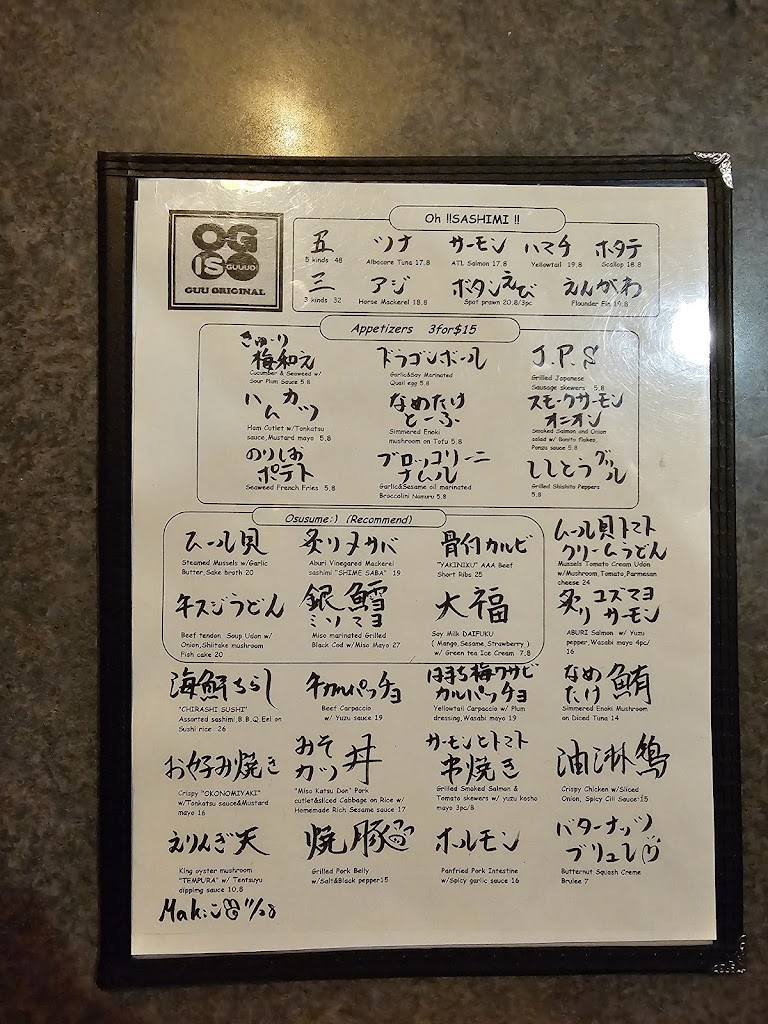 OG
IS GUUUO
GUU ORIGINAL
Oh !!SASHIMI !!
五 ツナ サーモン ハマチ ホタテ
5 kinds 48 Albacore Tuna 17.8 ATL Salmon 17.8 Yellowtail 19.8 Scallop 18.8
三 アジ ボタンえび えんがわ
3 kinds 32 Horse Mackerel 18.8 Spot prawn 20.8/3pc Flounder Fin 19.8
Appetizers 3for$15
きゅーり
梅和え
Cucumber & Seaweed w/
Sour Plum Sauce 5.8
ドラゴンボール
Garlic&Soy Marinated
Quail egg 5.8
J.P.S
Grilled Japanese
Sausage skewers 5.8
ハムカツ
Ham Cutlet w/Tonkatsu
sauce,Mustard mayo 5.8
なめたけ
とーふ
Simmered Enoki
mushroom on Tofu 5.8
スモークサーモン
オニオン
Smoked Salmon and Onion
salad w/ Bonito flakes,
Ponzu sauce 5.8
のりしお
ポテト
Seaweed French Fries 5.8
ブロッコリーニ
ナムル
Garlic&Sesame oil marinated
Broccolini Namuru 5.8
ししとうグリル
Grilled Shishito Peppers
5.8
Osusume:) (Recommend)
ムール貝
Steamed Mussels w/Garlic
Butter,Sake broth 20
炙り〆サバ
Aburi Vinegared Mackerel
sashimi "SHIME SABA" 19
骨付カルビ
"YAKINIKU" AAA Beef
Short Ribs 25
ムール貝トマト
クリームうどん
Mussels Tomato Cream Udon
w/Mushroom,Tomato,Parmesan
cheese 24
牛スジうどん
Beef tendon Soup Udon w/
Onion,Shiitake mushroom
Fish cake 20
銀鱈
ミソマヨ
Miso marinated Grilled
Black Cod w/Miso Mayo 27
大福
Soy Milk DAIFUKU
( Mango,Sesame,Strawberry )
w/ Green tea Ice Cream 7.8
炙り ユズマヨ
サーモン
ABURI Salmon w/ Yuzu
pepper,Wasabi mayo 4pc/
16
海鮮ちらし
"CHIRASHI SUSHI"
Assorted sashimi,B.B.Q.Eel on
Sushi rice 26
牛カルパッチョ
Beef Carpaccio
w/ Yuzu sauce 19
はまち梅ワサビ
カルパッチョ
Yellowtail Carpaccio w/ Plum
dressing,Wasabi mayo 19
なめ
たけ 鮪
Simmered Enoki Mushroom
on Diced Tuna 14
お好み焼き
Crispy "OKONOMIYAKI"
w/Tonkatsu sauce&Mustard
mayo 16
みそ
カツ丼
"Miso Katsu Don" Pork
cutlet&sliced Cabbage on Rice w/
Homemade Rich Sesame sauce 17
サーモンとトマト
串焼き
Grilled Smoked Salmon &
Tomato skewers w/ yuzu kosho
mayo 3pc/8
油淋鶏
Crispy Chicken w/Sliced
Onion, Spicy Cili Sauce 15
えりんぎ天
King oyster mushroom
"TEMPURA" w/ Tentsuyu
dipping sauce 10.8
焼豚
Grilled Pork Belly
w/Salt&Black pepper15
ホルモン
Panfried Pork Intestine
w/Spicy garlic sauce 16
バターナッツ
ブリュレ
Butternut Squash Creme
Brulee 7